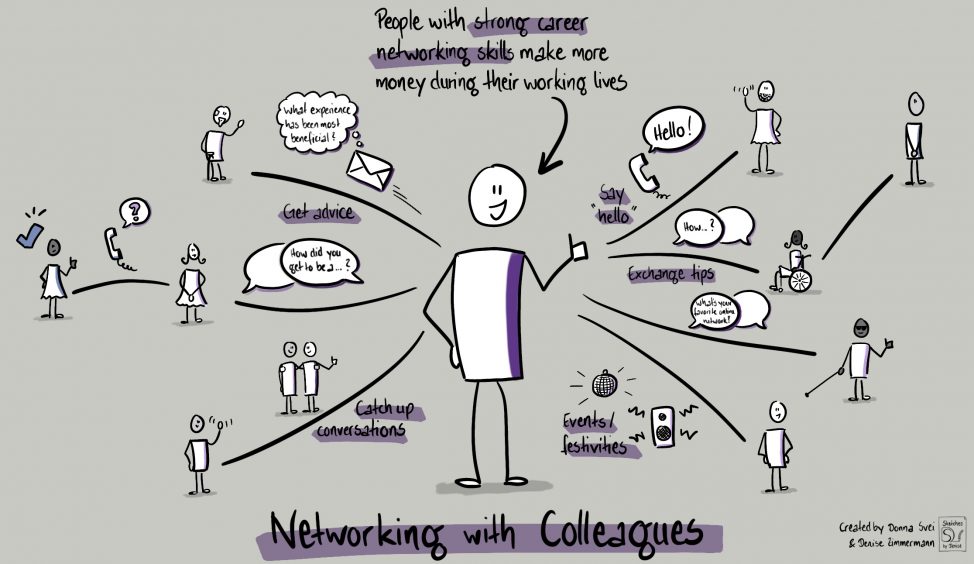 People with strong career
networking skills make more
money during their working lives
What experience
has been most
beneficial?
Hello!
Get advice
"Say
hello"
?
How did you
get to be a...?
How..?
Exchange tips
What's your
favorite online
network?
Catch up
conversations
Events/
festivities
Networking with Colleagues
Created by Donna Svei
& Denise Zimmermann
Sketches
by Denise